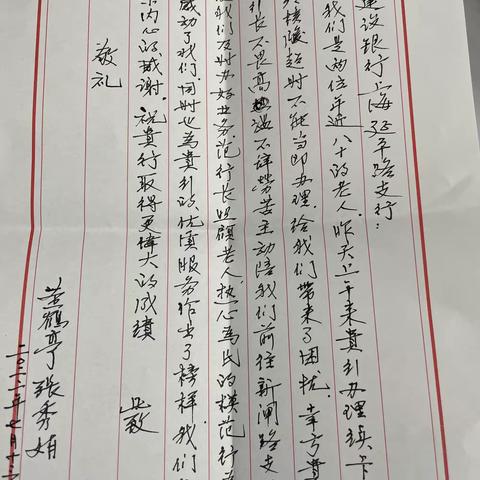 建设银行上海延平路支行：
我们是两位年近八十的老人，昨天上午来貴行办理换卡
核驗超时不能当即办理，给我们帶来了困扰，幸亏貴
行长不畏高温不辞勞苦主动陪我们前往新闸路支
我们及时办好业务，范行长照顧老人，热心為民的模范行
感动了我们，同时也為貴行的优质服务作出了榜样，我们
内心的感谢，祝貴行取得更偉大的成績
此致
敬礼
黄鶴亭 张秀娟
二〇二二年七月十